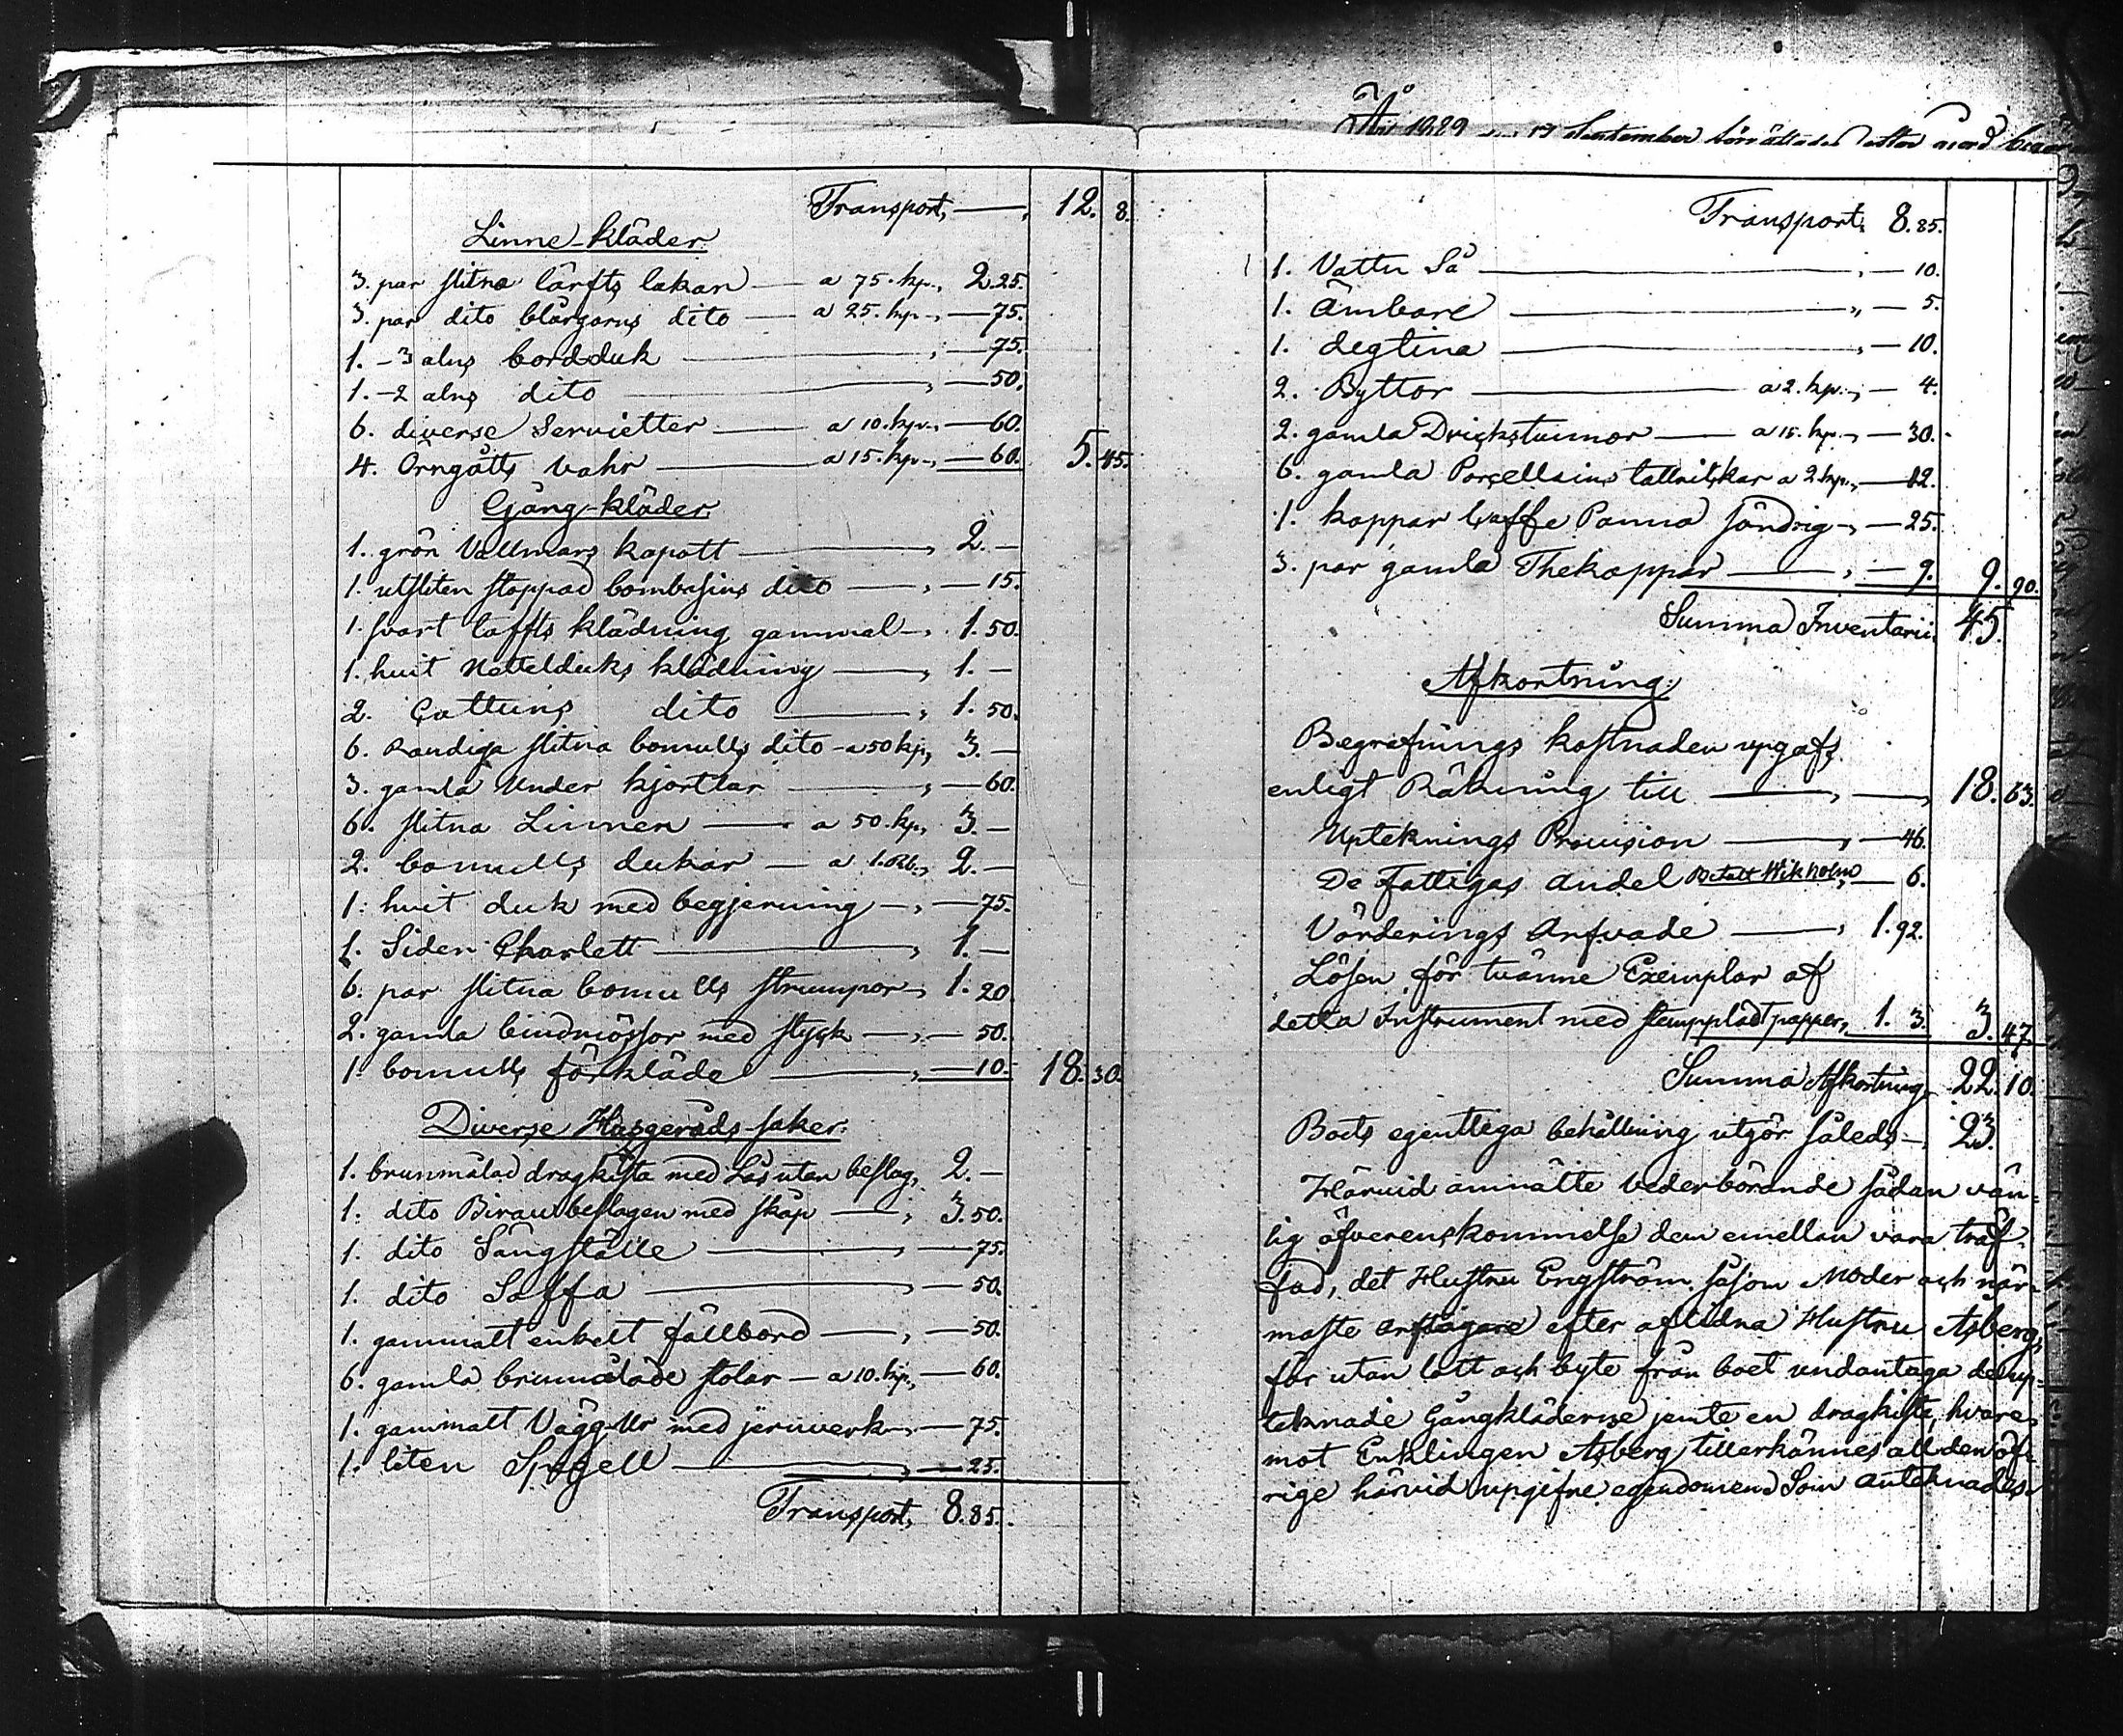 Transport, — 12. 8.
Linne-kläder
3. par slitna lärfts lakan — a 75. kp., 2.25.
3. par dito blårgarns dito — a 25. kp., — 75.
1. - 3 alns bordduk — , — 75.
1. - 2 alns dito — , — 50.
6. diverse Servietter — a 10. kp., — 60.
4. Örngåtts vahr — a 15. kp., — 60. 5. 45.
Gång-kläder
1. grön Vallmars kapott — , 2. —
1. utsliten stoppad bombasins dito — , — 15.
1. svart taffts klädning gammal — , 1. 50.
1. hvit Nettelduks klädning — , 1. —
2. Cattuns dito — , 1. 50.
6. Randiga slitna bomulls dito - a 50 kp., 3. —
3. gamla Under kjortlar — , — 60.
6. slitna Linnen — a 50. kp., 3. —
2. bomulls dukar — a 1. Rb., 2. —
1. hvit duk med begjerning — , — 75.
1. Siden Charlett — , 1. —
6. par slitna bomulls strumpor — , 1. 20.
2. gamla bindmössor med styck — , — 50.
1. bomulls förkläde — , — 10. 18. 30.
Diverse Husgeråds-saker.
1. brunmålad dragkista med Lås utan beslag, 2. —
1. dito Birau beslagen med skåp — , 3. 50.
1. dito Sängställe — , — 75.
1. dito Saffa — , — 50.
1. gammalt enkelt fällbord — , — 50.
6. gamla brunmålade stolar — a 10. kp., — 60.
1. gammalt Vägg-Ur med jernverk — , — 75.
1. liten Spegell — , — 25.
Transport, 8. 85.
År 1829 den 17 September förrättades efter
Transport, 8. 85.
1. Vattu Så — , — 10.
1. Ämbare — , — 5.
1. degtina — , — 10.
2. Byttor — a 2. kp., — 4.
2. gamla Drickstunnor — a 15. kp., — 30.
6. gamla Porcellains tallrikar a 2 kp., — 12.
1. koppar Caffe Panna söndrig — , — 25.
3. par gamla Thekoppar — , — 9. 9. 90.
Summa Inventarii, 45.
Afkortning.
Begrafnings kostnaden upgafs
enligt Räkning till — , — , 18. 63.
Upteknings Provision — , — 46.
De Fattigas andel Betalt Wikholm, — 6.
Vörderings Arfvode — , 1. 92.
Lösen för tvänne Exemplar af
detta Instrument med stempladt papper, 1. 3. 3. 47.
Summa Afkortning, 22. 10.
Boets egentliga behållning utgör såleds —, 23.
Härvid anmälte vederbörande sådan vän-
lig öfverenskommelse dem emellan vara träf-
fad, det Hustru Engström såsom Moder och när-
maste arftagare efter aflidna Hustru Asberg,
får utan lott och byte från boet undantaga de up-
teknade Gångkläderne jemte en dragkista, hvare-
mot Enklingen Asberg tillerkännes all den öf-
rige härvid upgifne egendomen Som anteknades.